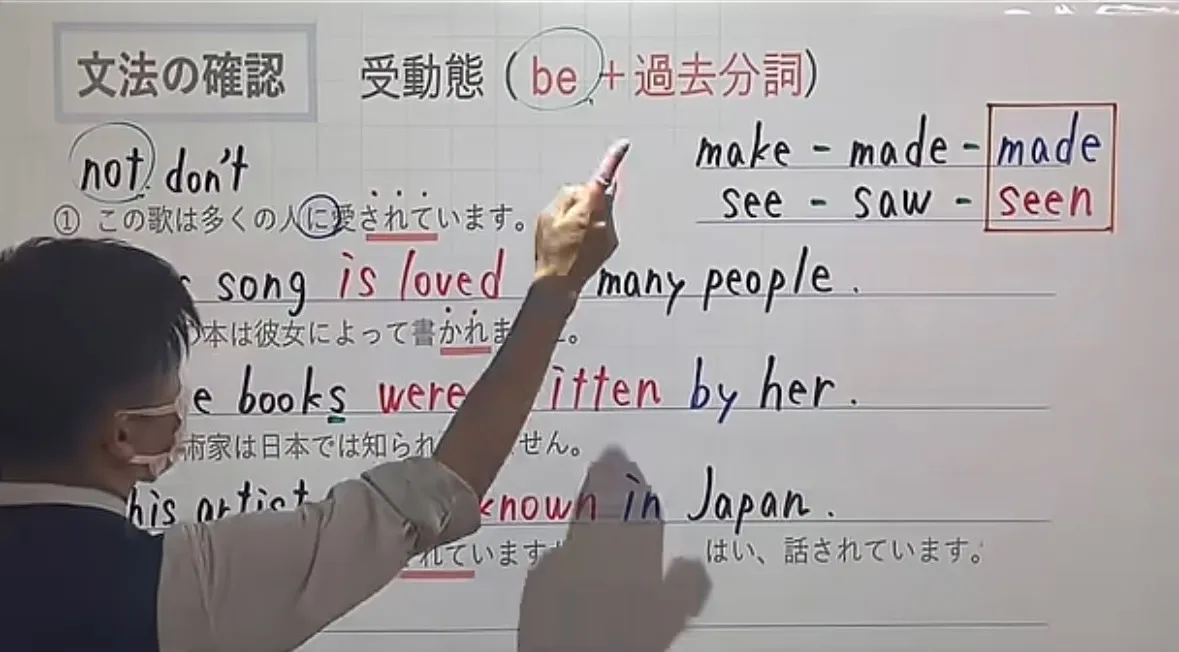 文法の確認 受動態 (be + 過去分詞)
make - made - made
not don't
see - saw - seen
① この歌は多くの人に愛されています。
song is loved many people.
本は彼女によって書かれま 。
books were itten by her.
術家は日本では知られ せん。
his artist known in Japan.
れています はい、話されています。